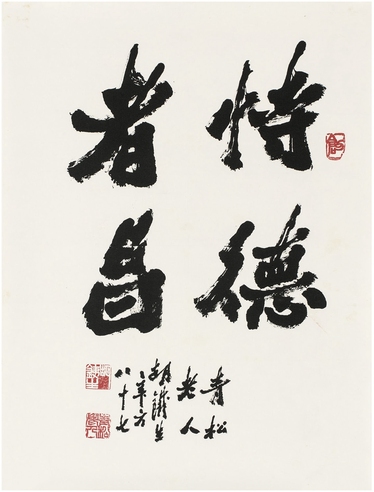 恃德
者昌
青松
老人
胡铁生
年方
八十七